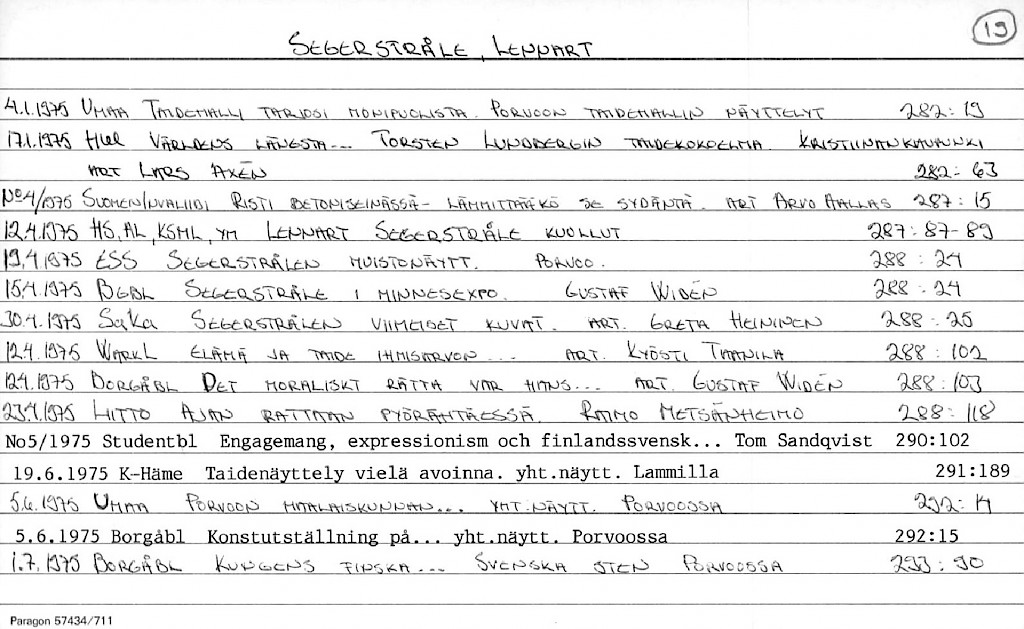 19
SEGERSTRÅLE, LENNART
4.1.1975 UMAA TAIDEMALLI TARJOSI MONIPUOLISTA. PORVOON TAIDEMALLIN NÄYTTELYT 282:19
17.1.1975 Hbl VÄRLDENS LÄNGSTA... TORSTEN LUNDBERGIN TAIDEKOKOELMA. KRISTIINANKAUPUNKI
ART LARS AXÉN 282:63
No 4/1975 SUOMEN INVALIIDI RISTI BETONISEINÄSSÄ - LÄMMITTÄÄKÖ SE SYDÄNTÄ. ART ARVO AALLAS 287:15
12.4.1975 HS, AL, KSML, YM LENNART SEGERSTRÅLE KUOLLUT 287:87-89
19.4.1975 ESS SEGERSTRÅLEN MUISTONÄYTT. PORVOO. 288:24
15.4.1975 BGBL SEGERSTRÅLE I MINNESEXPO. GUSTAF WIDÉN 288:24
30.4.1975 SaKa SEGERSTRÅLEN VIIMEISET KUVAT. ART. GRETA HEININEN 288:25
12.4.1975 WARKL ELÄMÄ JA TAIDE IHMISARVON... ART. KYÖSTI TAANILA 288:102
12.4.1975 BORGÅBL DET MORALISKT RÄTTA VAR HANS... ART. GUSTAF WIDÉN 288:103
23.4.1975 LIITTO AJAN RATTAAN PYÖRÄHTÄESSÄ. RAIMO METSÄNHEIMO 288:118
No5/1975 Studentbl Engagemang, expressionism och finlandssvensk... Tom Sandqvist 290:102
19.6.1975 K-Häme Taidenäyttely vielä avoinna. yht.näytt. Lammilla 291:189
5.6.1975 UMAA PORVOON MAALAISKUNNAN... YHT.NÄYTT. PORVOOSSA 292:14
5.6.1975 Borgåbl Konstutställning på... yht.näytt. Porvoossa 292:15
1.7.1975 BORGÅBL KUNGENS FINSKA... SVENSKA STEN PORVOOSSA 293:90
Paragon 57434/711